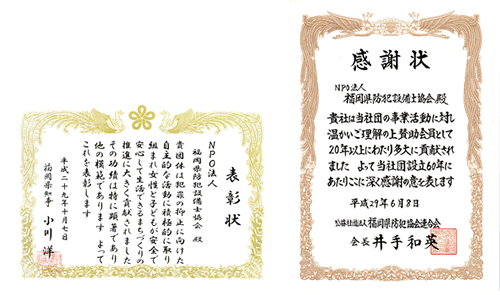 表彰状
NPO法人
福岡県防犯設備士協会 殿
貴団体は犯罪の抑止に向けた
自主的な活動に積極的に取り
組まれ女性と子どもが安全で
安心して生活できるまちづくりの
推進に大きく貢献されました
その功績は特に顕著であり
他の模範であります よって
これを表彰します
平成二十九年十月七日
福岡県知事 小川 洋
感謝状
NPO法人
福岡県防犯設備士協会 殿
貴社は当社団の事業活動に対し
温かいご理解の上賛助会員として
20年以上にわたり多大に貢献され
ました よって当社団設立60年に
あたりここに深く感謝の意を表します
平成29年6月8日
公益社団法人福岡県防犯協会連合会
会長 井手和英